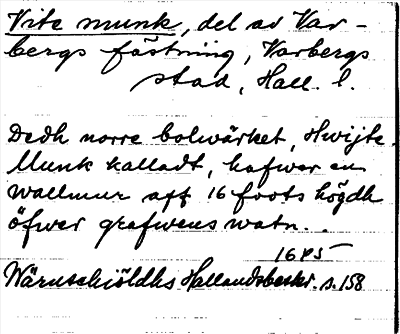 Vite munk, del av Var-
bergs fästning, Varbergs
stad, Hall. l.
Dedh norre bolwärket, Hwijte
Munk kalladt, hafwer en
wallmur aff 16 foots högdh
öfwer grafwens watn.
1685
Wärnschiöldhs Hallandsbeskr. s. 158